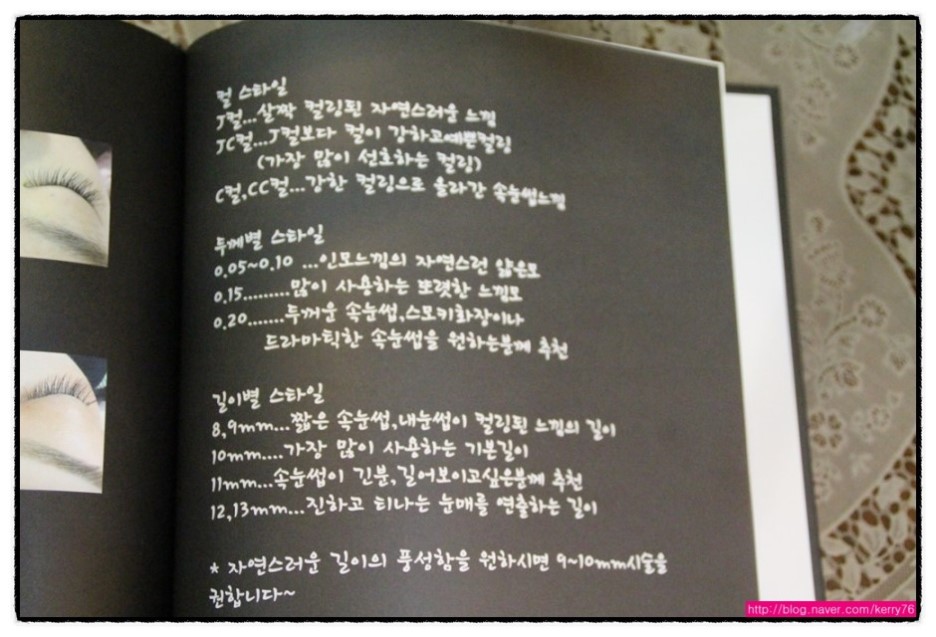 컬 스타일
J컬...살짝 컬링된 자연스러운 느낌
JC컬...J컬보다 컬이 강하고예쁜컬링
(가장 많이 선호하는 컬링)
C컬,CC컬...강한 컬링으로 올라간 속눈썹느낌
두께별 스타일
0.05~0.10 ...인모느낌의 자연스런 얇은모
0.15.........많이 사용하는 또렷한 느낌모
0.20.......두꺼운 속눈썹,스모키화장이나
드라마틱한 속눈썹을 원하는분께 추천
길이별 스타일
8,9mm...짧은 속눈썹,내눈썹이 컬링된 느낌의 길이
10mm....가장 많이 사용하는 기본길이
11mm...속눈썹이 긴분,길어보이고싶은분께 추천
12,13mm...진하고 티나는 눈매를 연출하는 길이
* 자연스러운 길이의 풍성함을 원하시면 9~10mm시술을
권합니다~
http://blog.naver.com/kerry76